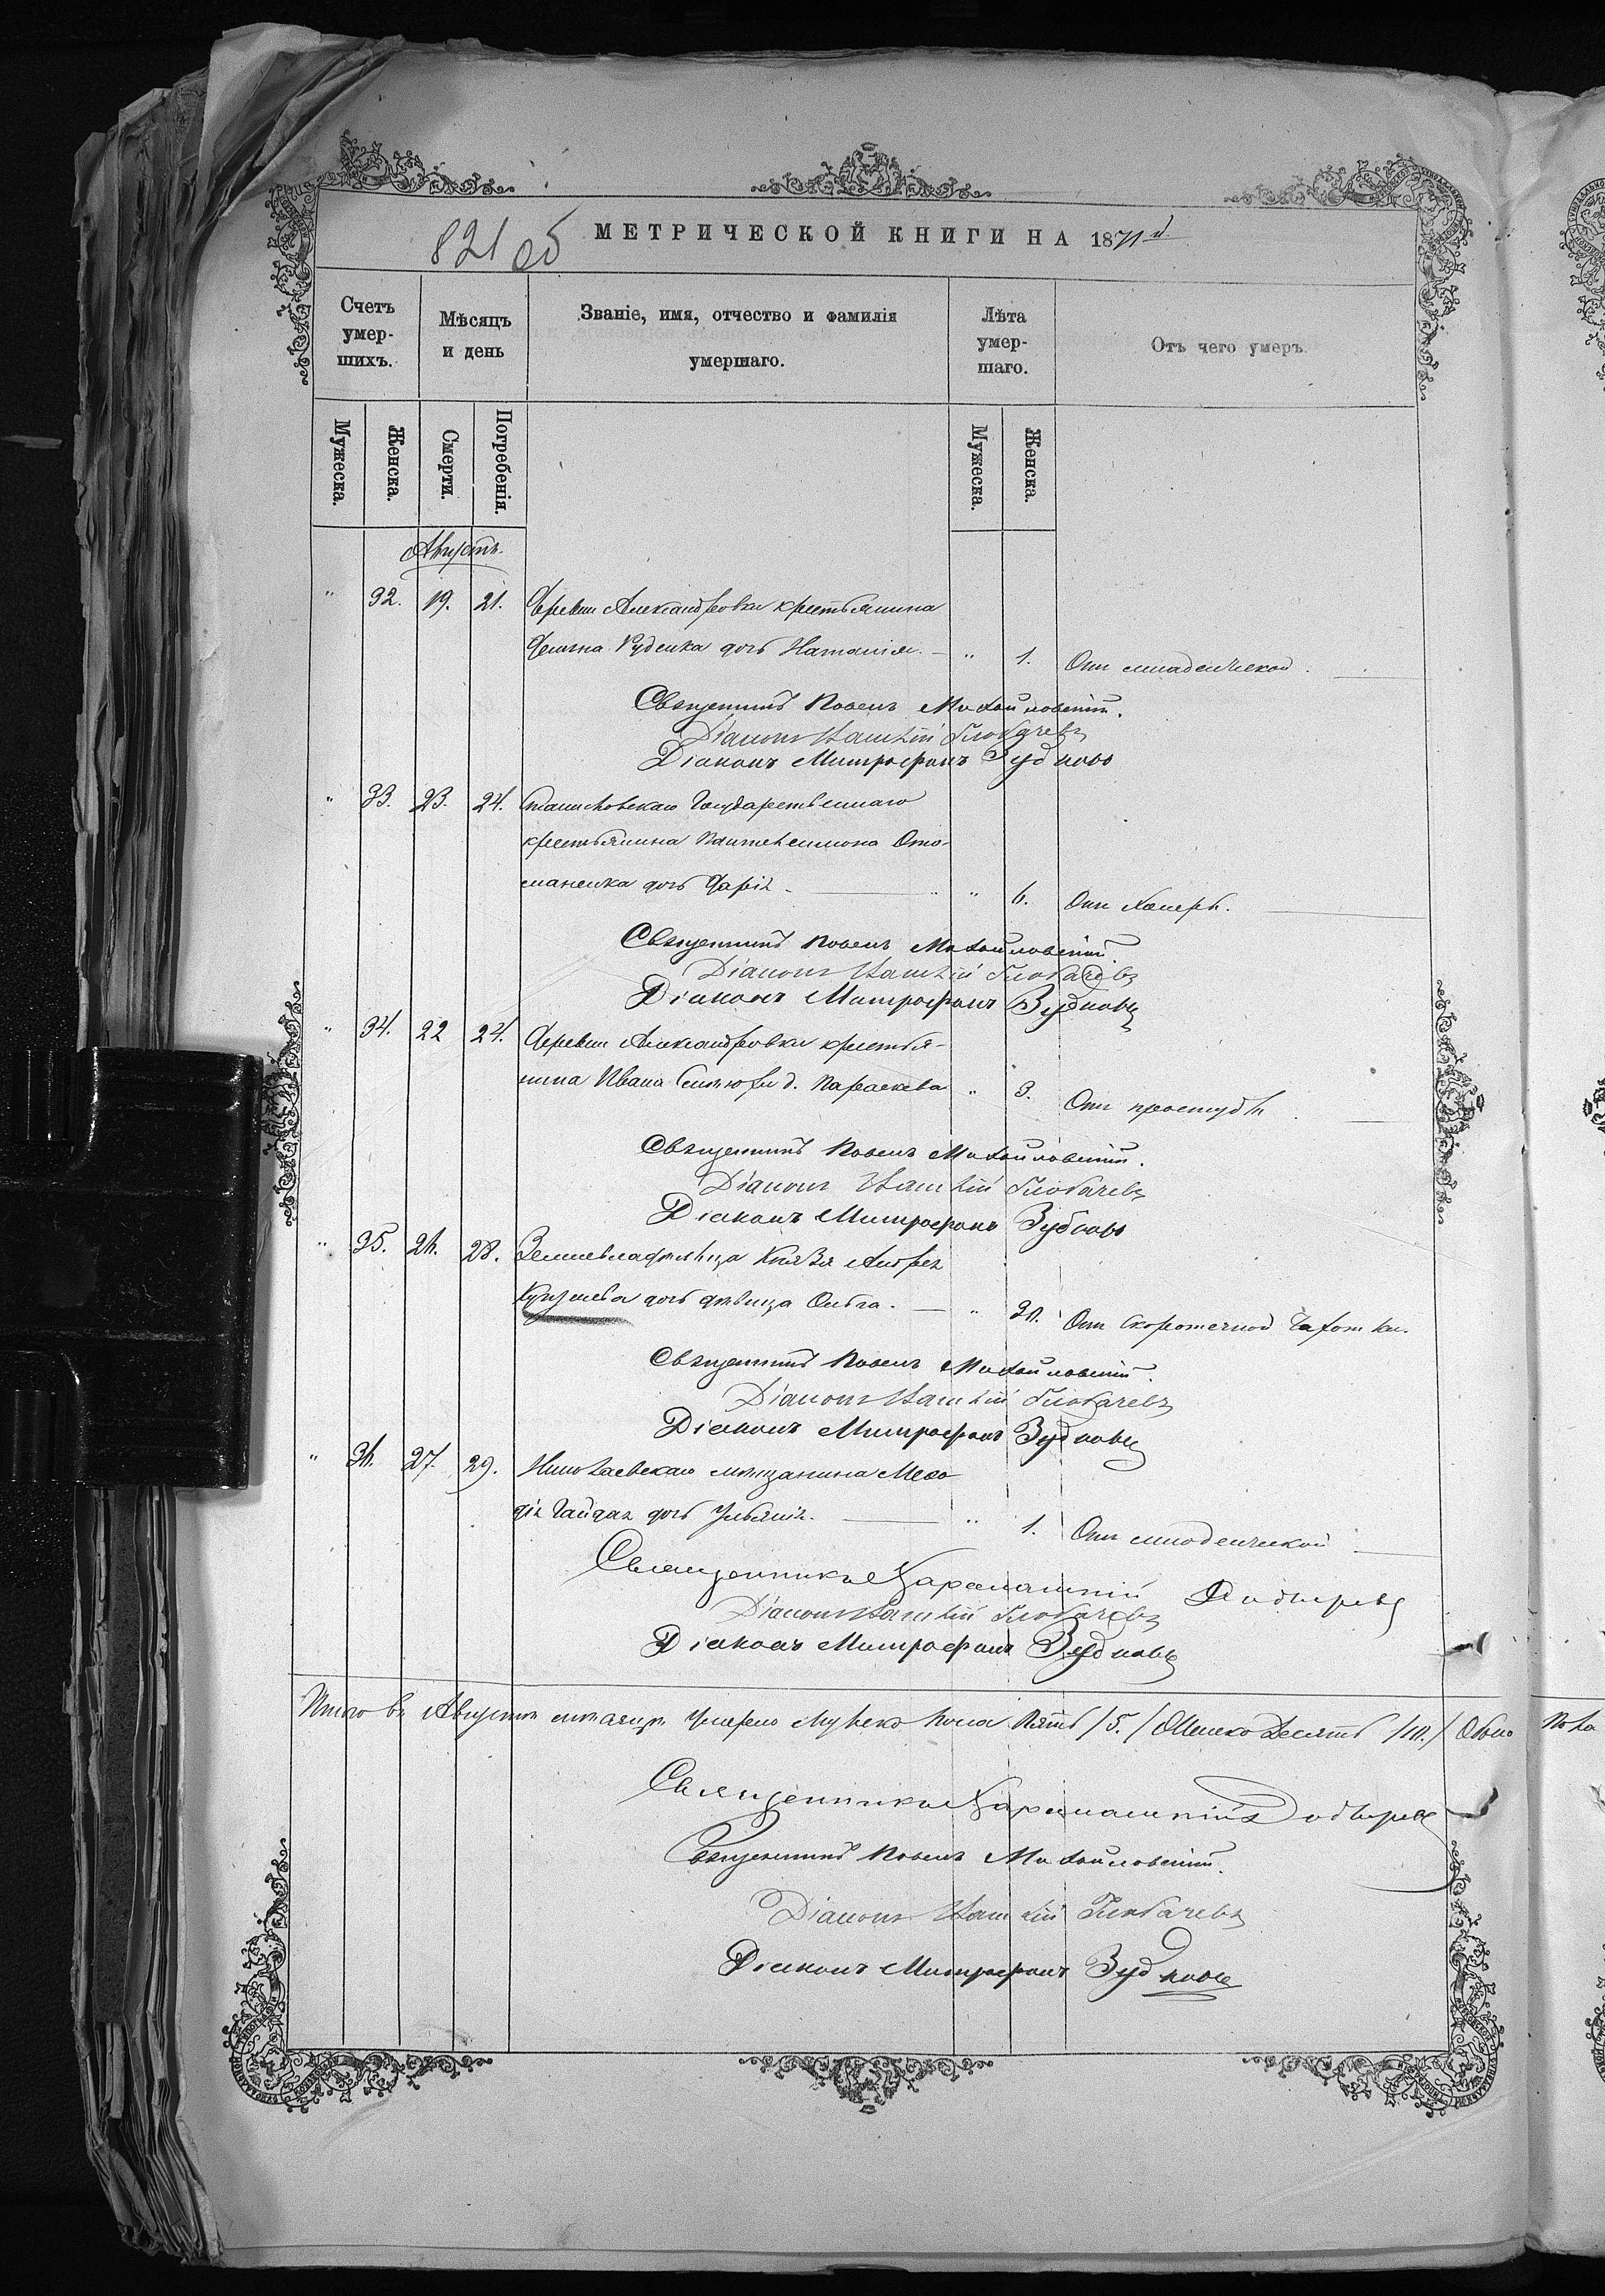 821 об
МЕТРИЧЕСКОЙ КНИГИ НА 1871й
Счетъ умер-шихъ.
Мѣсяцъ и день
Званіе, имя, отчество и фамилія умершаго.
Лѣта умер-шаго.
Отъ чего умеръ.
Мужеска.
Женска.
Смерти.
Погребенія.
Мужеска.
Женска.
Августъ.
" 32. 19. 21. Деревни Александровки крестьянина
Руденка дочь Наталія. " 1. Отъ младенческой.
Священникъ Павелъ Михайловскій.
Діаконъ Глобачевъ
Діаконъ Митрофанъ
" 33. 23. 24. Государственнаго
крестьянина Пантелеимона Ото-
маненка дочь Дарія. " 6. Отъ холеры.
Священникъ Павелъ Михайловскій.
Діаконъ Глобачевъ
Діаконъ Митрофанъ
" 34. 22 24. Деревни Александровки крестья-
нина Ивана д. Параскева " 3. Отъ простуды
Священникъ Павелъ Михайловскій.
Діаконъ Глобачевъ
Діаконъ Митрофанъ
" 35. 26. 28. Землевладѣльца Князя Андрея
дочь дѣвица Ольга. " Отъ скоротечной чахотки.
Священникъ Павелъ Михайловскій.
Діаконъ Глобачевъ
Діаконъ Митрофанъ
" 36. 27. 29. Николаевскаго мѣщанина Меѳо-
дія Гайдая дочь Ульянія. " 1. Отъ младенческой
Священникъ
Діаконъ Глобачевъ
Діаконъ Митрофанъ
Итого въ Августѣ мѣсяцѣ умерло мужеска пола пять /5./ Женска десять /10./ Обоего пола
Священникъ
Священникъ Павелъ Михайловскій.
Діаконъ Глобачевъ
Діаконъ Митрофанъ